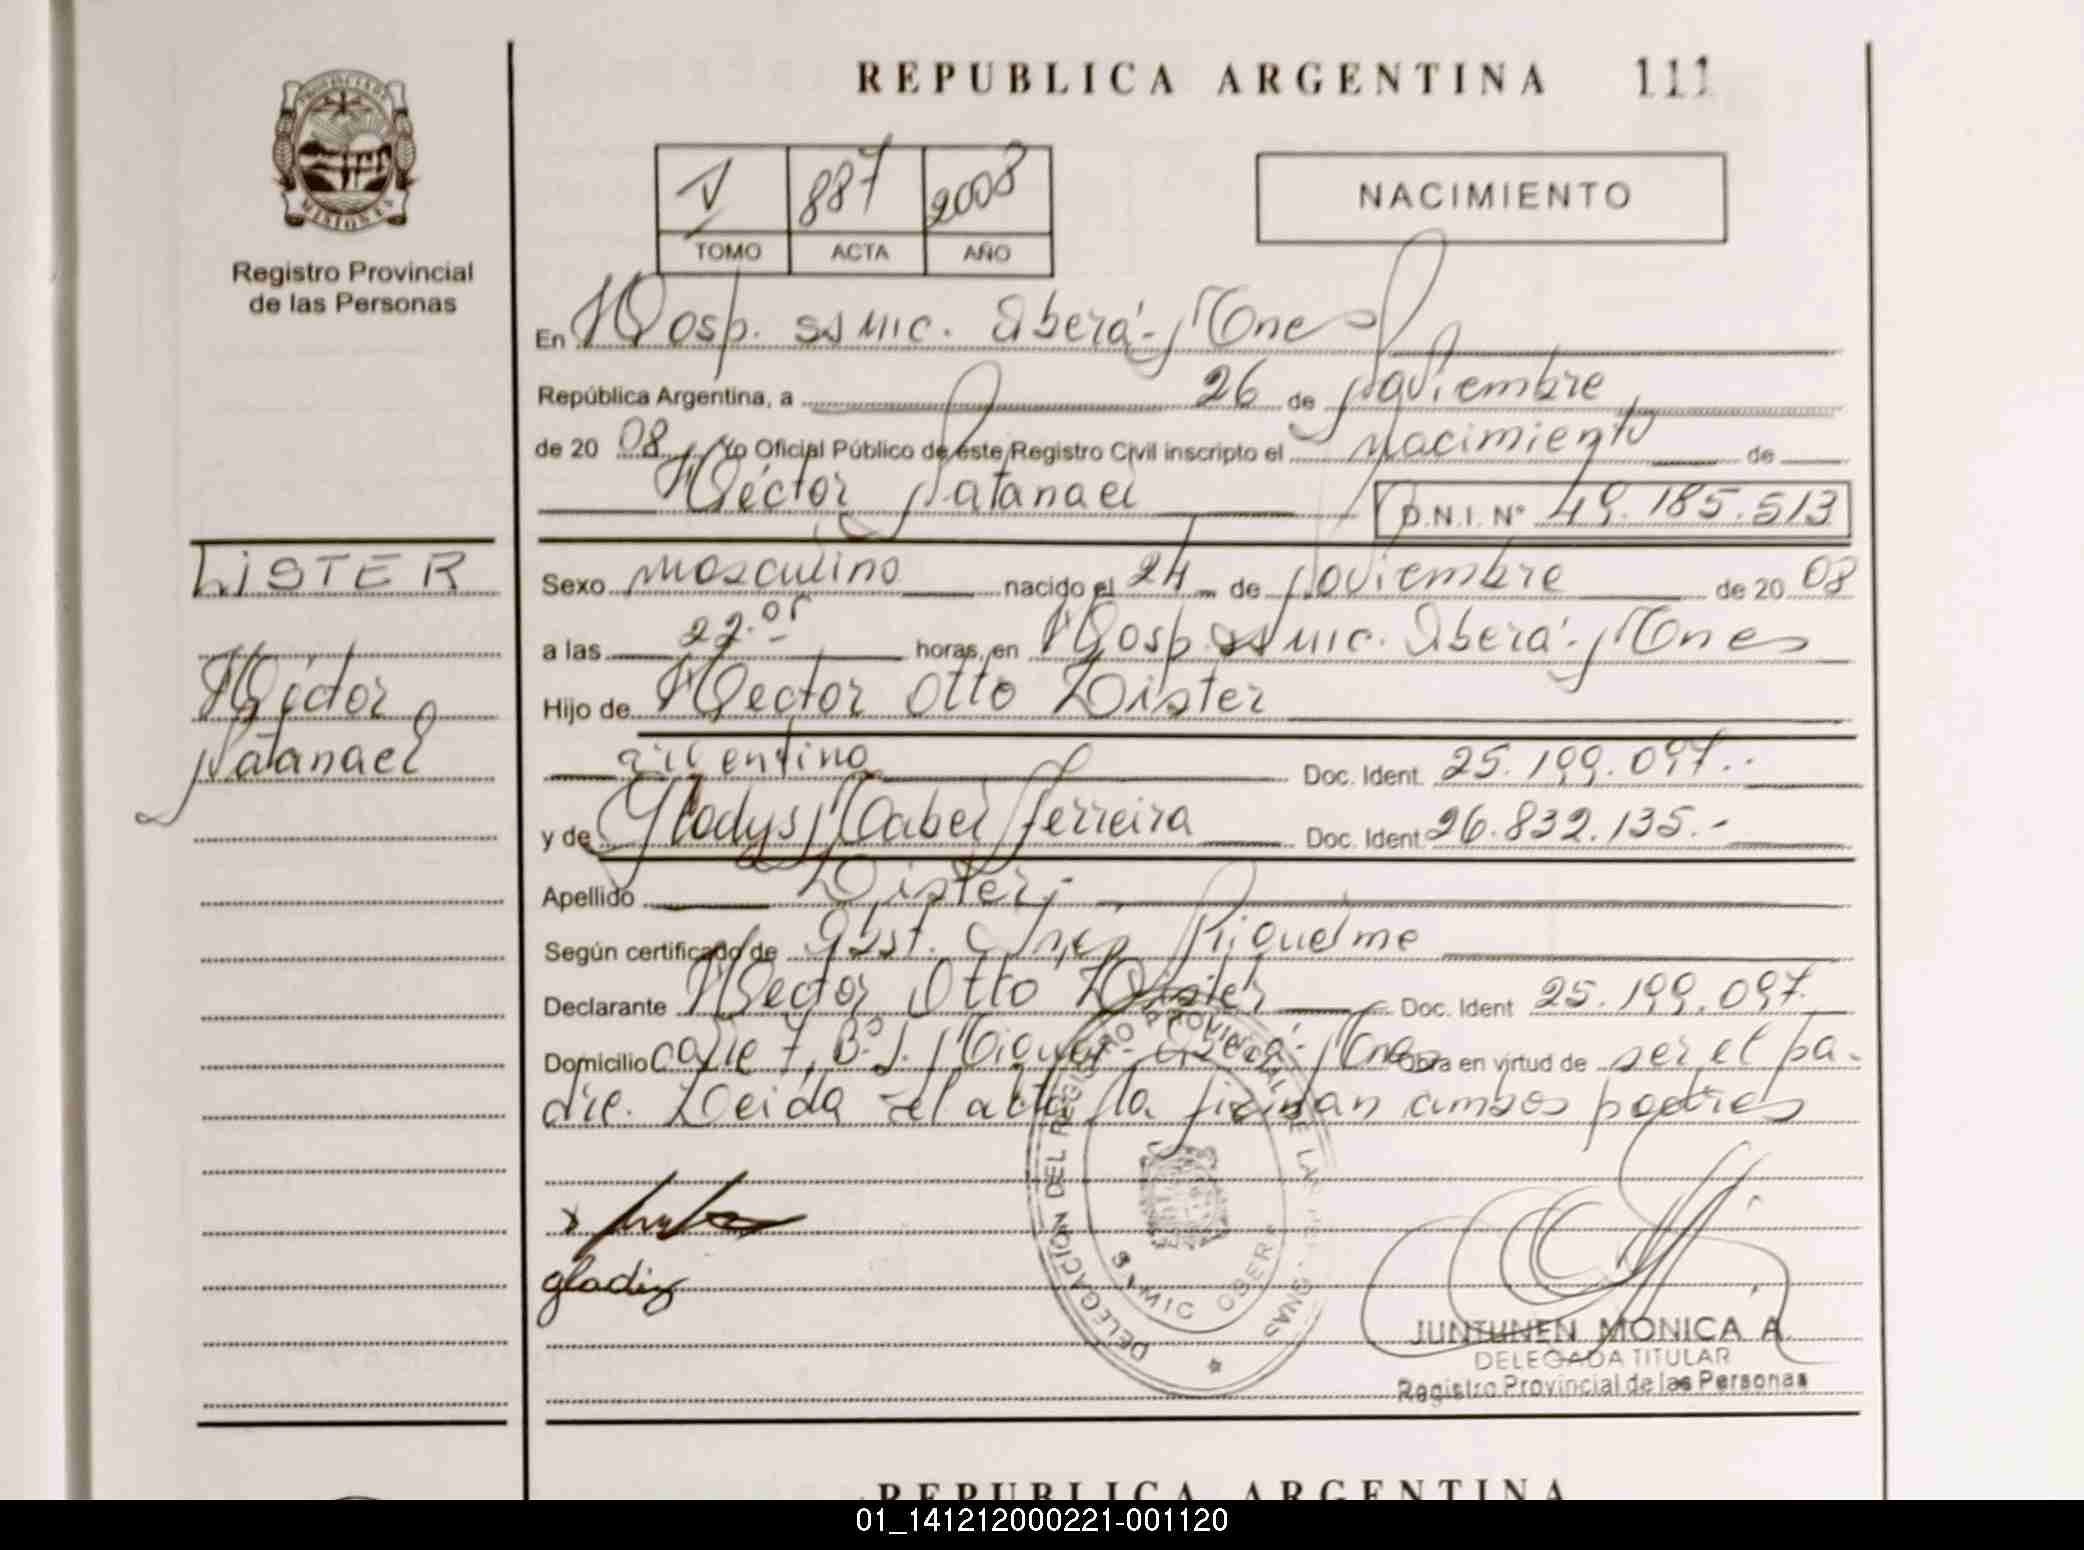 REPUBLICA ARGENTINA 111
V 887 2008
TOMO ACTA AÑO
NACIMIENTO
MISIONES
Registro Provincial
de las Personas
En Hosp. SSMIC. Oberá - Mnes
República Argentina, a 26 de Noviembre
de 20 08 Yo Oficial Público de este Registro Civil inscripto el Nacimiento de
Héctor Natanael D.N.I. Nº 49.185.513
LISTER
Héctor
Natanael
Sexo Masculino nacido el 24 de Noviembre de 20 08
a las 22.05 horas, en Hosp. SSMIC. Oberá - Mnes
Hijo de Hector Otto Lister
argentino Doc. Ident. 25.199.097.-
y de Gladys Mabel Ferreira Doc. Ident 26.832.135.-
Apellido Lister.-
Según certificado de Obst. Riquelme
Declarante Hector Otto Lister Doc. Ident 25.199.097.
Domicilio calle 7, Bº S. Miguel - Oberá - Mnes Obra en virtud de ser el pa-
dre. Leida el acta la firman ambos padres
gladiz
DELEGACION DEL REGISTRO PROVINCIAL DE LAS PERSONAS
SAMIC OBERA
JUNTUNEN MONICA A.
DELEGADA TITULAR
Registro Provincial de las Personas
REPUBLICA ARGENTINA
01_141212000221-001120